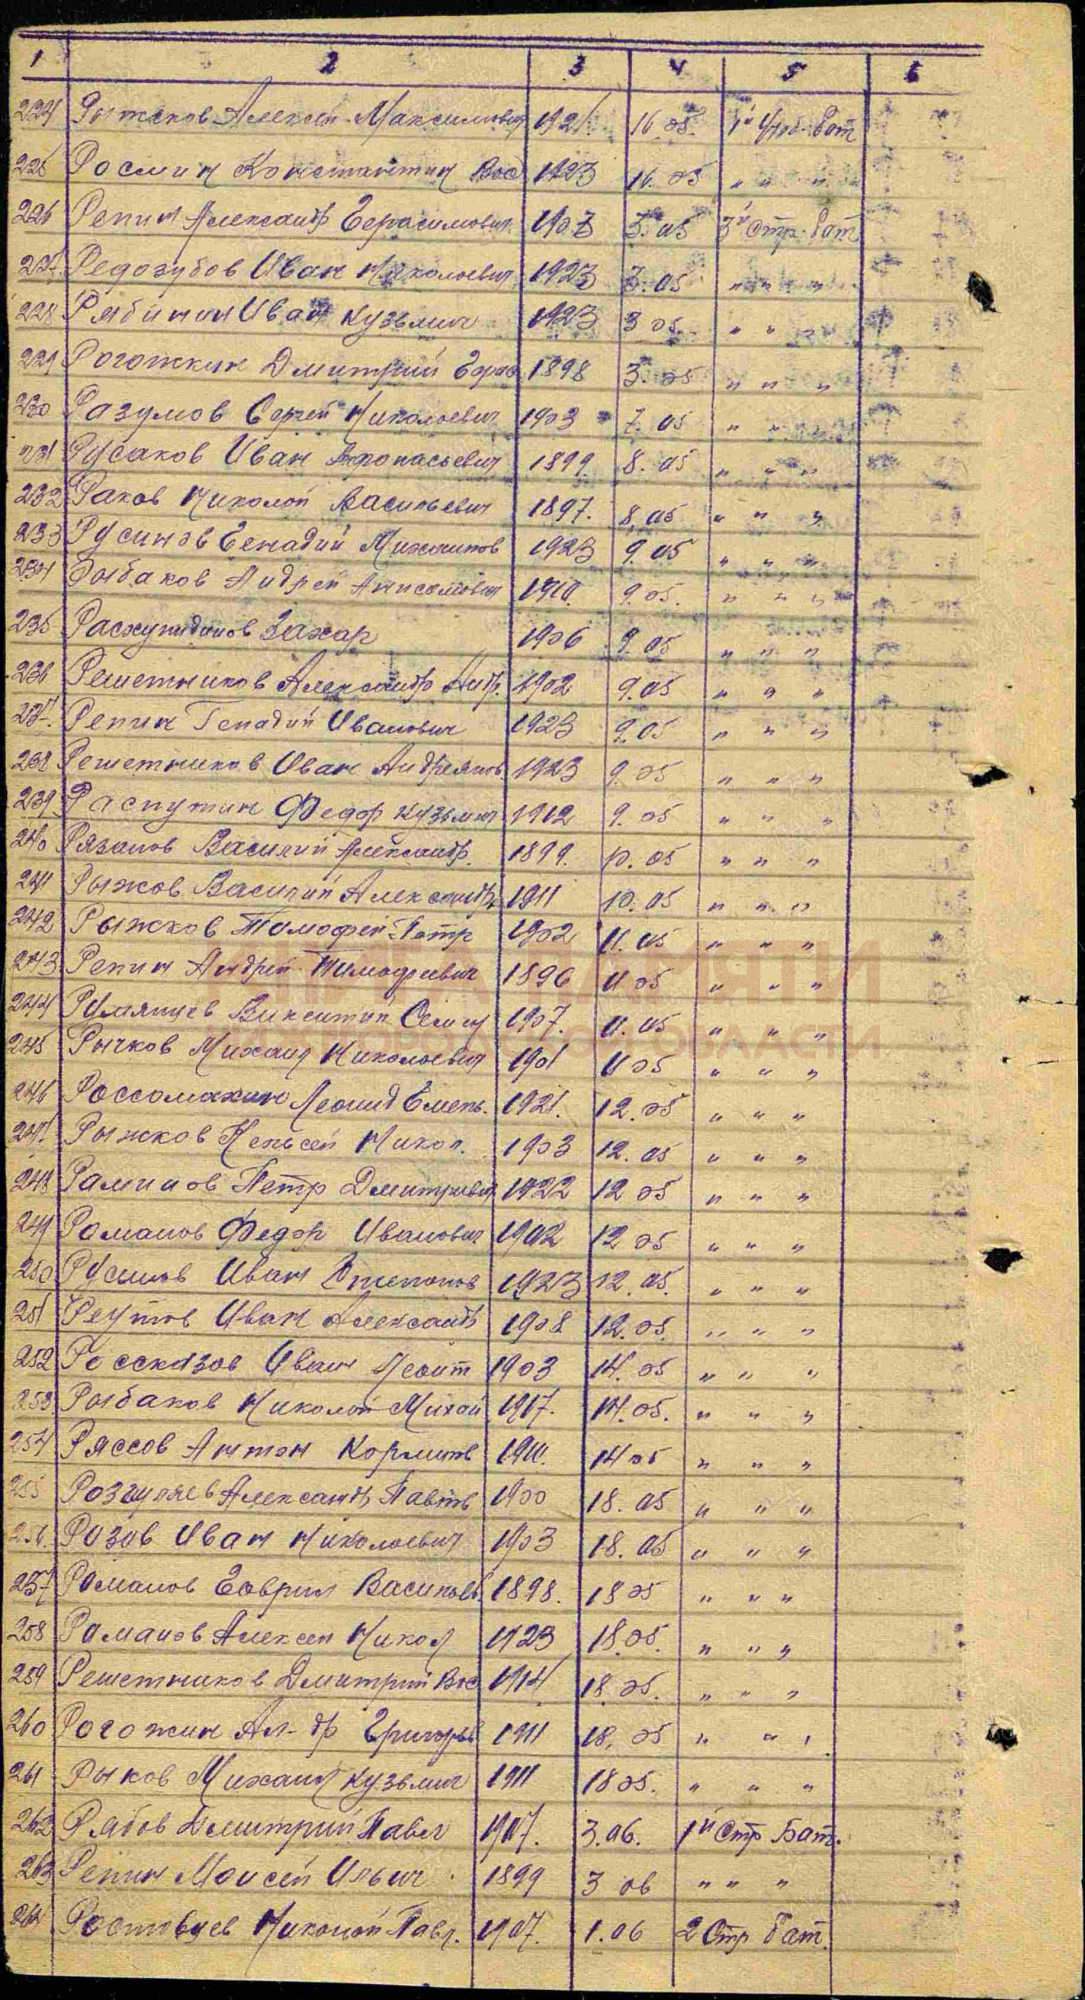 1 2 3 4 5 6
224 Рыжков Алексей Максимович 1921 16.05. 1й Учеб. Бат
225 Росмин Константин Вас 1923 16.05 " " "
226 Репин Александр Герасимович 1907 3.05 3й Стр. Бат
227 Редозубов Иван Николаевич 1923 3.05 " " "
228 Рябинин Иван Кузьмич 1923 3 05 " " "
229 Рогожкин Дмитрий Герас 1898 3.05 " " "
230 Разумов Сергей Николаевич 1903 7.05 " "
231 Русаков Иван Афонасьевич 1899 8.05 " " "
232 Раков Николай Васильевич 1897. 8.05 " " "
233 Русинов Генадий Михаилов 1923 9.05 " " "
234 Рыбаков Андрей 1910. 9.05. " " "
235 Захар 1906 9.05 " " "
236 Решетников Александр Андр. 1902 9.05 " " "
237. Репин Генадий Иванович 1923 9.05 " " "
238 Решетников Иван Андреянов. 1923 9.05 " " "
239 Распутин Федор Кузьмич 1912 9.05 " " "
240 Рязанов Василий Александр. 1899. 10.05 " " "
241 Рыжов Василий Александр 1911 10.05 " " "
242 Рыжков Тимофей Петр 1902 11.05 " " "
243 Репин Андрей Тимофеевич 1896 11 05 " " "
244 Румянцев Викентий Семен 1907. 11.05 " " "
245 Рычков Михаил Николаевич 1901 11 05 " " "
246 Россомахин Леонид Емель. 1921. 12.05 " " "
247 Рыжков Никол. 1903 12.05 " " "
248 Раминов Петр Дмитриевич 1922 12 05 " " "
249 Романов Федор Иванович 1902 12 05 " " "
250 Русинов Иван Степанов 1923 12.05. " " "
251 Реутов Иван Александр 1908 12.05. " " "
252 Россказов Иван Леонт 1903 14.05 " " "
253 Рыбаков Николай Михай 1917. 14.05. " " "
254 Ряссов Антон 1910. 14 05 " " "
255 Розгуляев Александр Павлов 1900 18.05 " " "
256. Розов Иван Николаевич 1903 18.05 " " "
257 Романов Гаврил Васильев 1898. 18 05 " " "
258 Романов Алексей Никол 1923 18.05. " " "
259 Решетников Дмитрий Вас 1914 18.05. " " "
260 Рогожин Ал-др Григорьев 1911 18.05 " " "
261 Рыков Михаил Кузьмич 1911 18 05. " " "
262 Рябов Дмитрий Павл 1907. 3.06. 1й Стр Бат.
263 Репин Моисей Ильич 1899 3 06 " " "
264 Ростовцев Николай Павл. 1907. 1.06 2 Стр Бат.